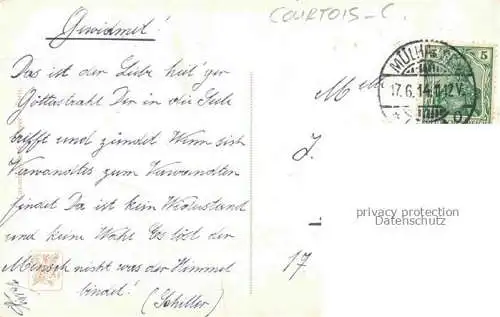 COURTOIS-C.
Gewidmet!
Das ist der Liebe heil'ger
Götterstrahl Der in die Seele
trifft und zündet Wenn sich
Verwandtes zum Verwandten
findet Da ist kein Widerstand
und keine Wahl Es löst der
Mensch nicht was der Himmel
bindet! (Schiller)
5
MÜLHA
17.6.14.11-12V.
M
J.
17
privacy protection
Datenschutz